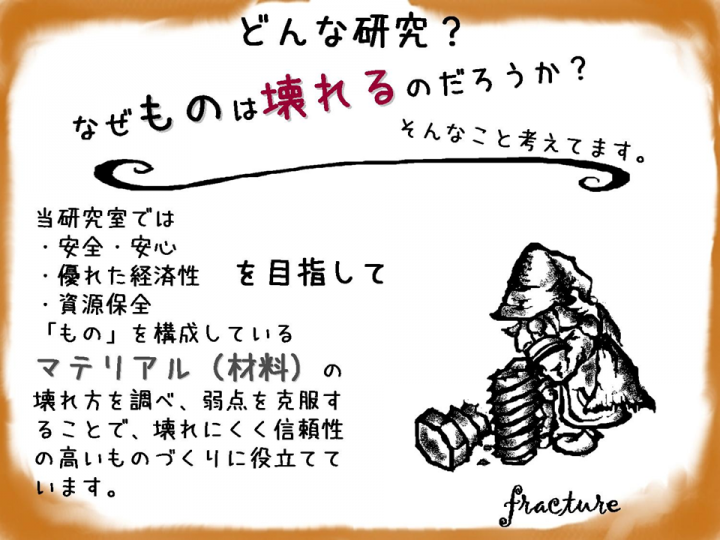 どんな研究？
なぜものは壊れるのだろうか？
そんなこと考えてます。
当研究室では
・安全・安心
・優れた経済性　を目指して
・資源保全
「もの」を構成している
マテリアル（材料）の
壊れ方を調べ、弱点を克服す
ることで、壊れにくく信頼性
の高いものづくりに役立てて
います。
fracture